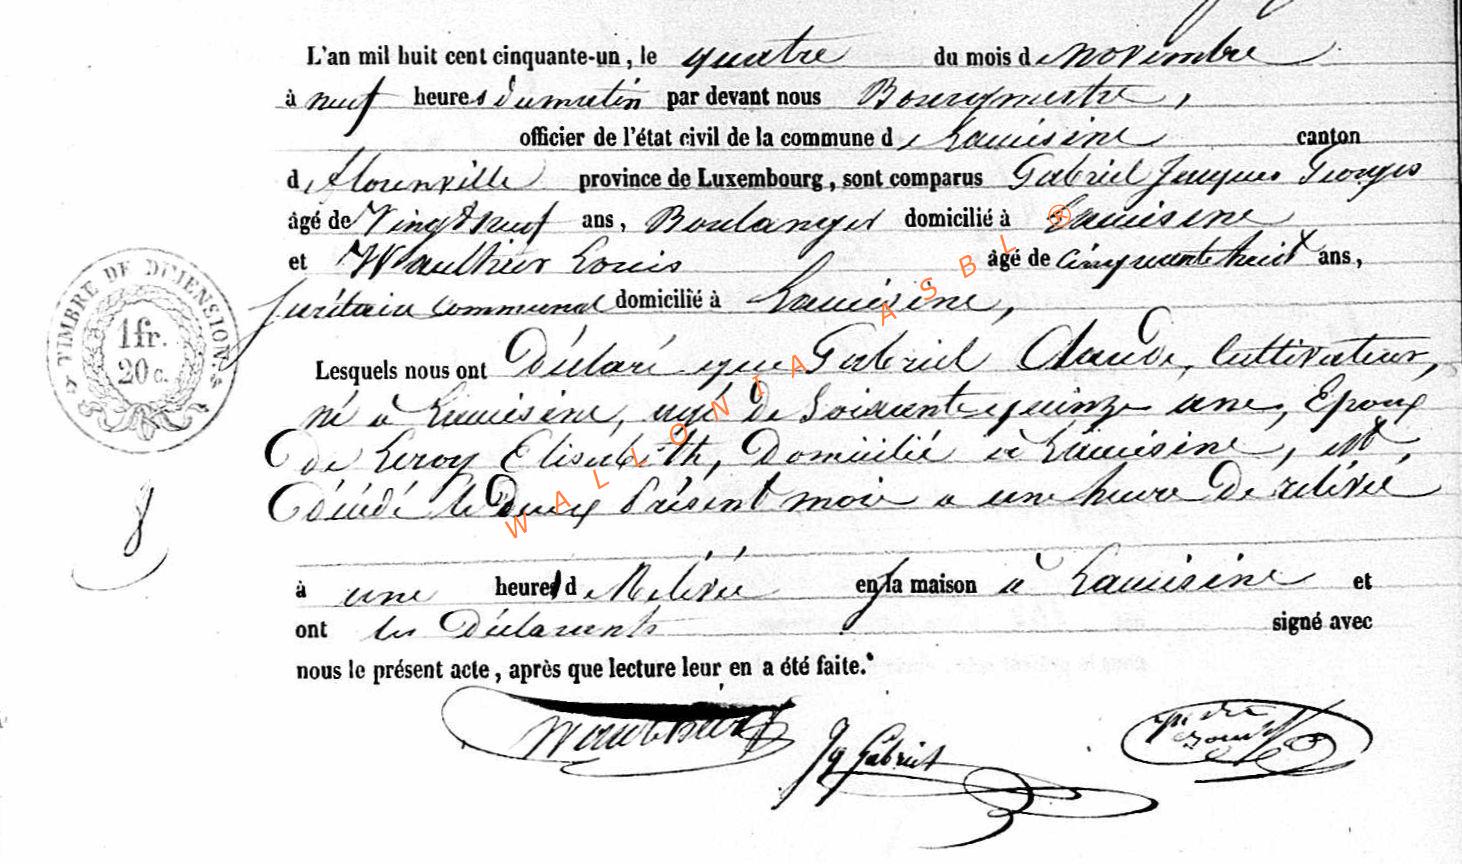 L'an mil huit cent cinquante-un, le quatre du mois de novembre
à neuf heures du matin par devant nous Bourgmestre,
officier de l'état civil de la commune de Lacuisine canton
de Florenville province de Luxembourg, sont comparus Gabriel Jacques Georges
âgé de Vingt neuf ans, Boulanger domicilié à Lacuisine
et Wauthier Louis âgé de cinquante huit ans,
secrétaire communal domicilié à Lacuisine,
Lesquels nous ont Déclaré que Gabriel Claude, Cultivateur,
né à Lacuisine, agé de Soixante quinze ans, Epoux
de Leroy Elisabeth, Domicilié à Lacuisine, est
Décédé le Deux Présent mois a une heure De relevée
à une heure de Relevée en sa maison à Lacuisine et
ont les Déclarants signé avec
nous le présent acte, après que lecture leur en a été faite.
Wauthier Jq Gabriel
TIMBRE DE DIMENSION
1 fr.
20 c.
WALLONIA ASBL ®